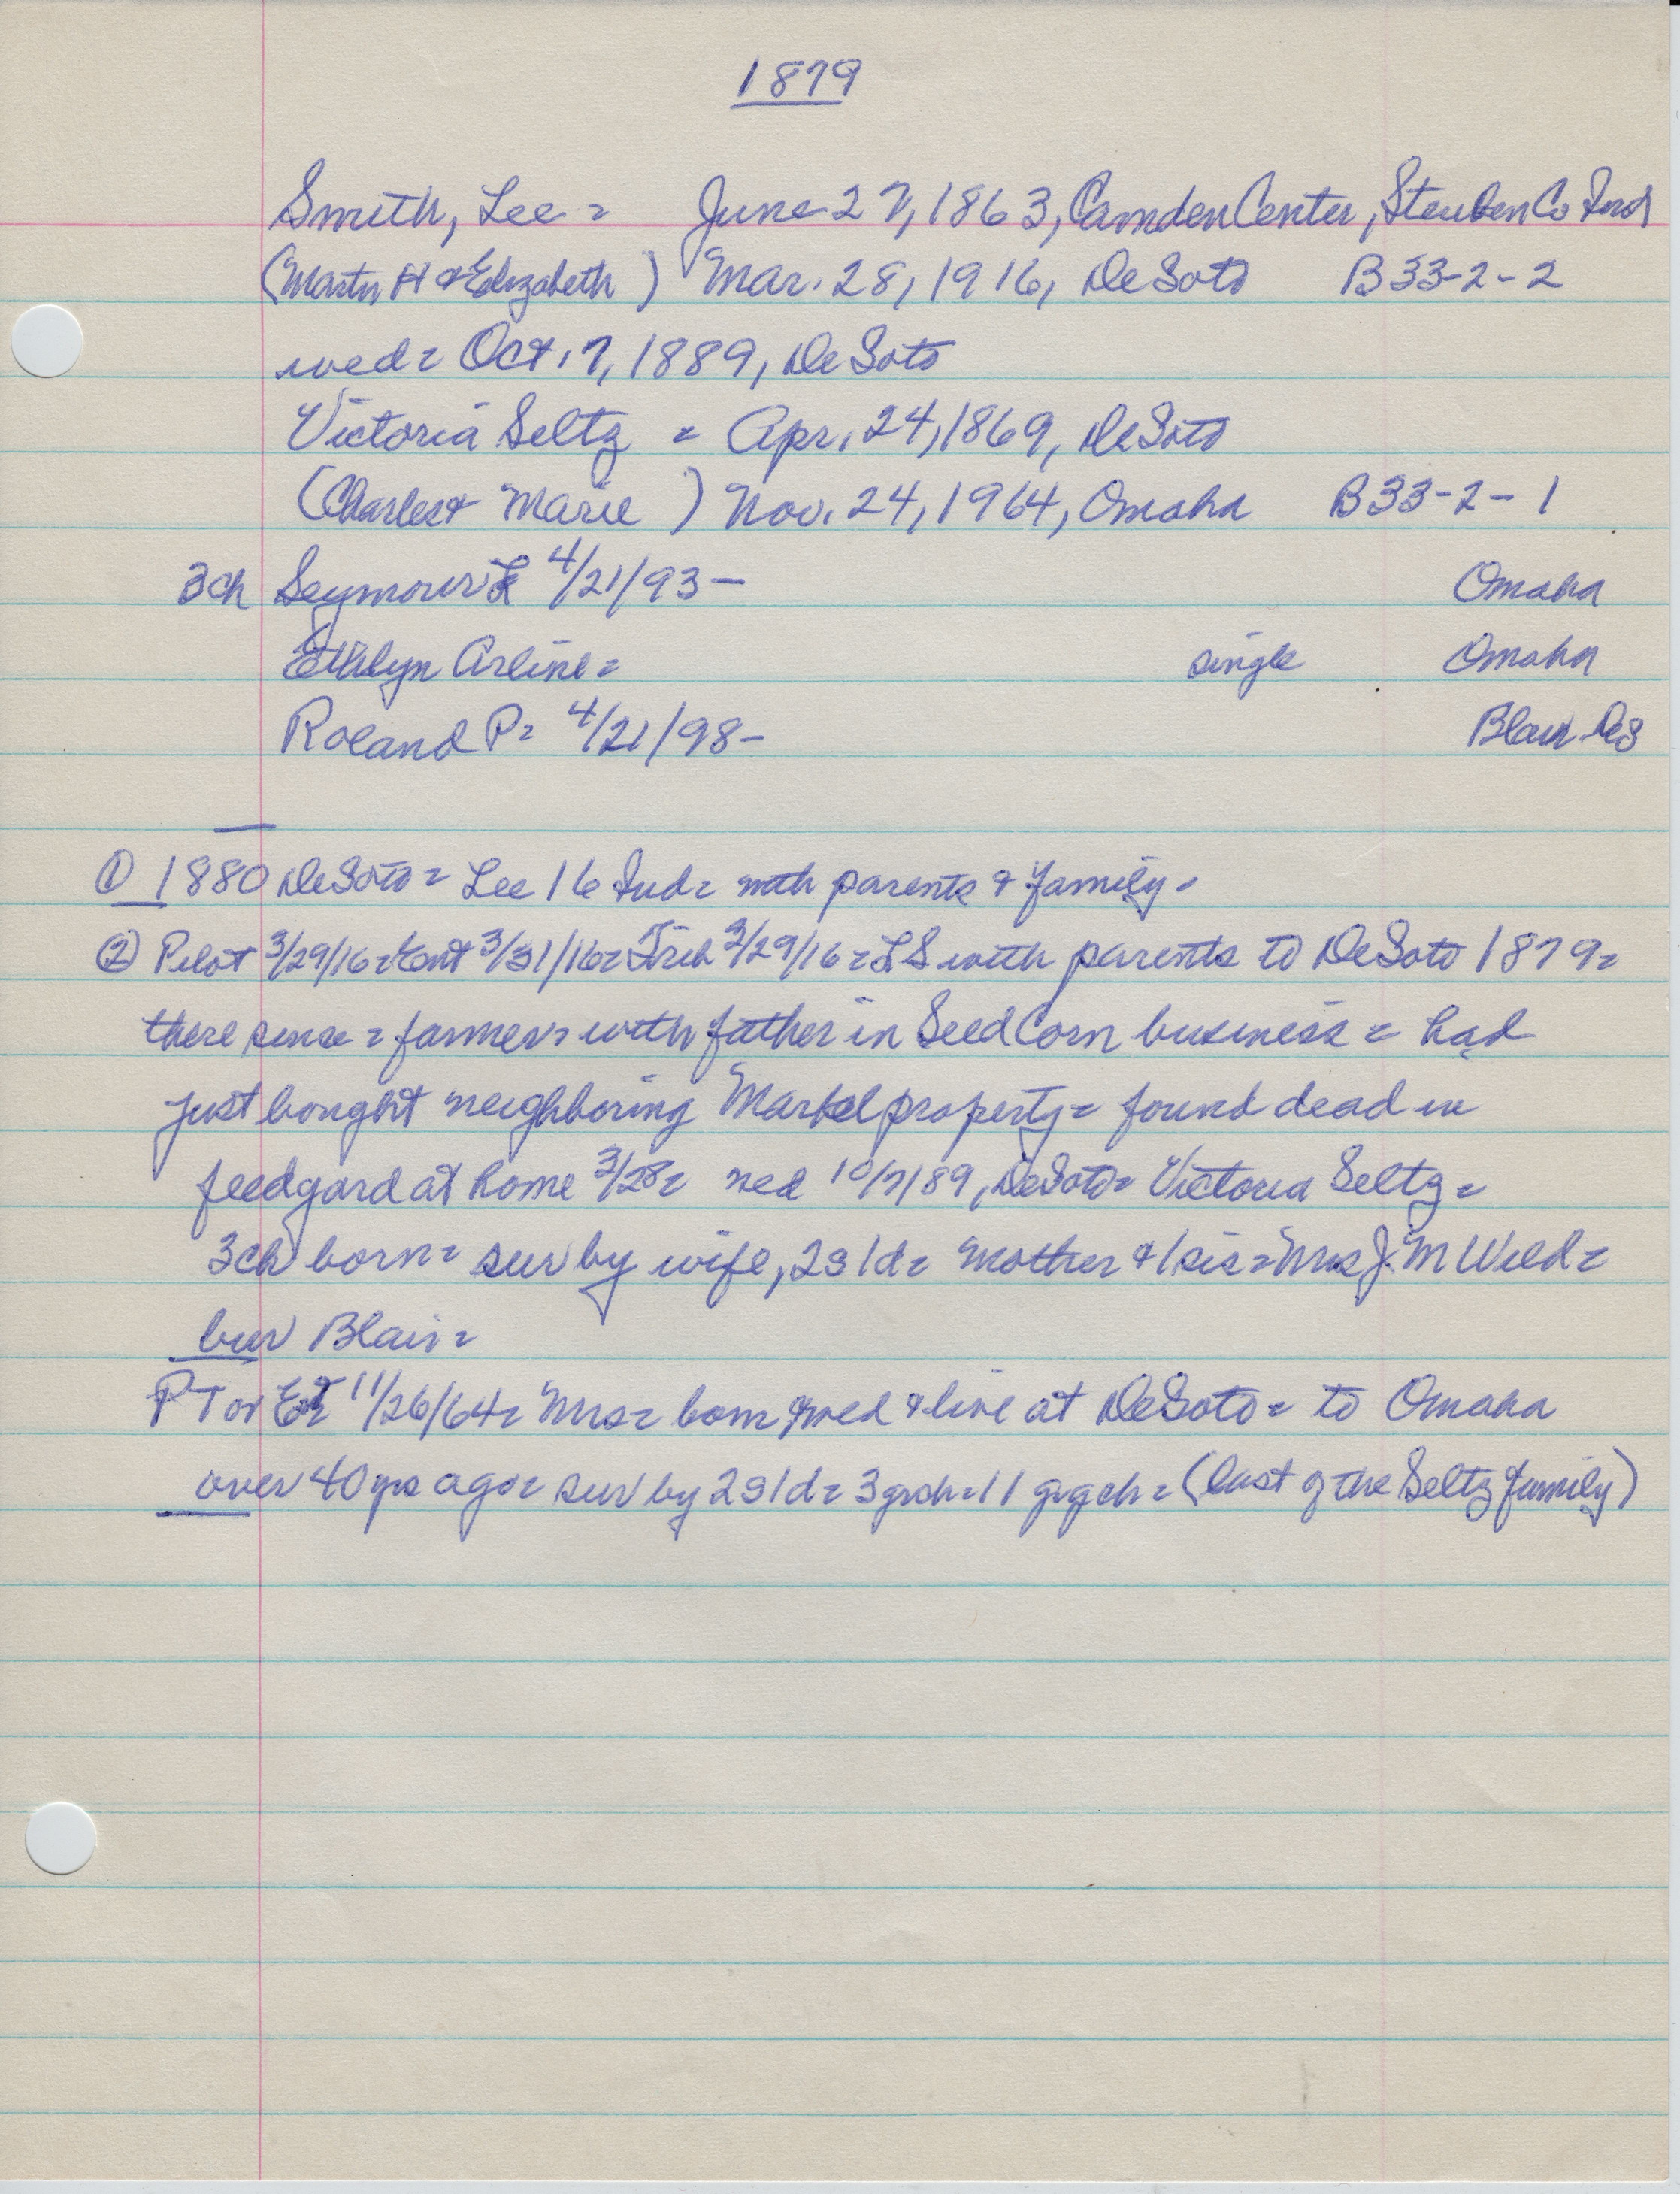 1879
Smith, Lee = June 27, 1863, Camden Center, Steuben Co Ind
(Martin H & Elizabeth) Mar. 28, 1916, DeSoto B33-2-2
wed = Oct. 7, 1889, DeSoto
Victoria Seltz = Apr. 24, 1869, DeSoto
(Charles & Marie) Nov. 24, 1964, Omaha B33-2-1
3ch Seymour L 4/21/93 - Omaha
Ethlyn Arline = single Omaha
Roland P = 4/21/98 - Blair
① 1880 DeSoto = Lee 16 Ind = with parents & family -
② Pilot 3/29/16 = Ent 3/31/16 = Trib 3/29/16 = LS with parents to DeSoto 1879 =
there since = farmer = with father in Seed Corn business = had
just bought neighboring Markel property = found dead in
feedyard at home 3/28 = wed 10/7/89, DeSoto = Victoria Seltz =
3ch born = sur by wife, 2s 1d = mother & 1 sis = Mrs J. M Wild =
bur Blair =
PT or Et 11/26/64 = Mrs = born, wed & live at DeSoto = to Omaha
over 40 yrs ago = sur by 2s 1d = 3 grch = 11 grgch = (last of the Seltz family)